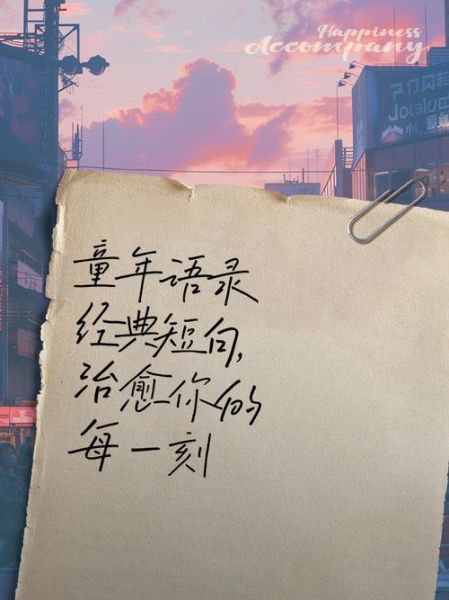 Happiness
Accompany
童年语录
经典短句,
治愈你的
每一刻